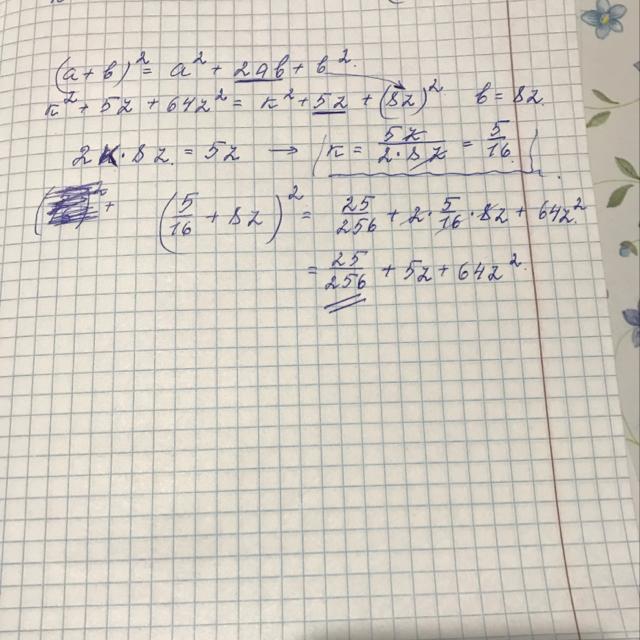 (a+b)² = a² + 2ab + b².
к² + 5z + 64z² = к² + 5z + (8z)² b = 8z
2к · 8z = 5z → к = 5z / 2·8z = 5/16
+ (5/16 + 8z)² = 25/256 + 2·5/16·8z + 64z²
= 25/256 + 5z + 64z².